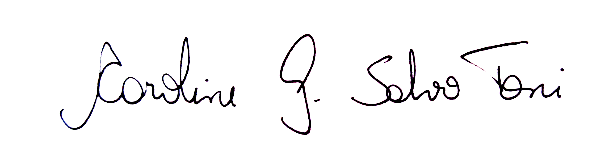 Caroline G. Salvo Toni